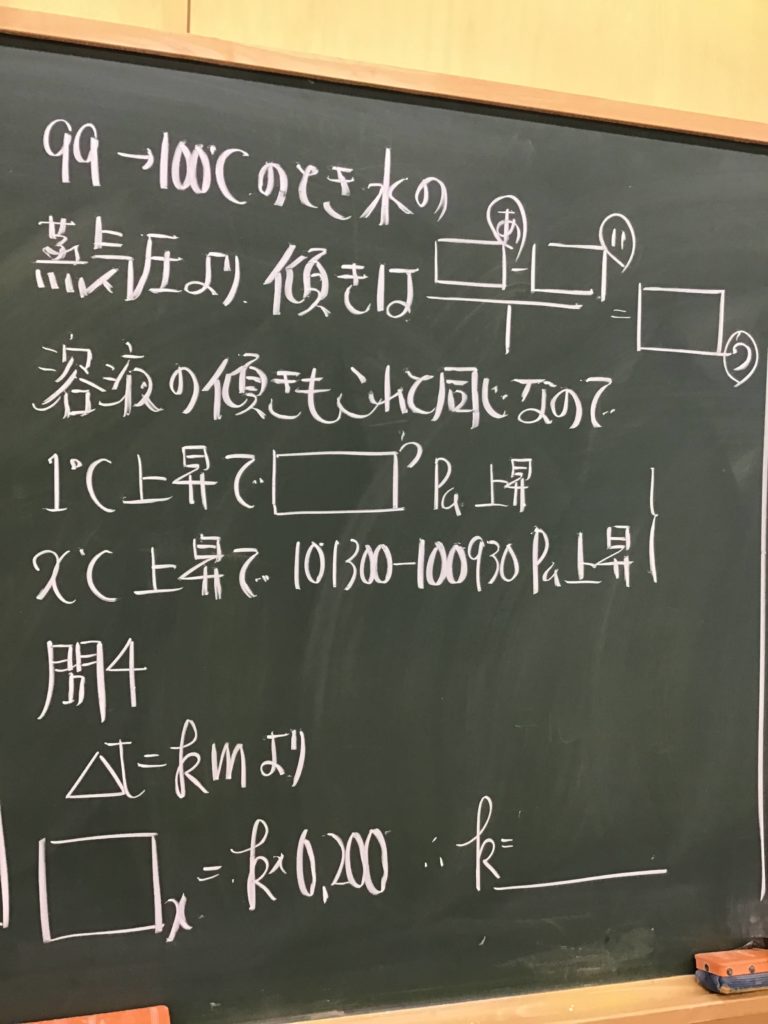 99→100℃のとき水の
蒸気圧より 傾きは □あ-□い/1 = □う
溶液の傾きもこれと同じなので
1℃上昇で□う Pa上昇
x℃上昇で 101300-100930 Pa上昇
問4
Δt=kmより
□x = k×0.200 ∴k=